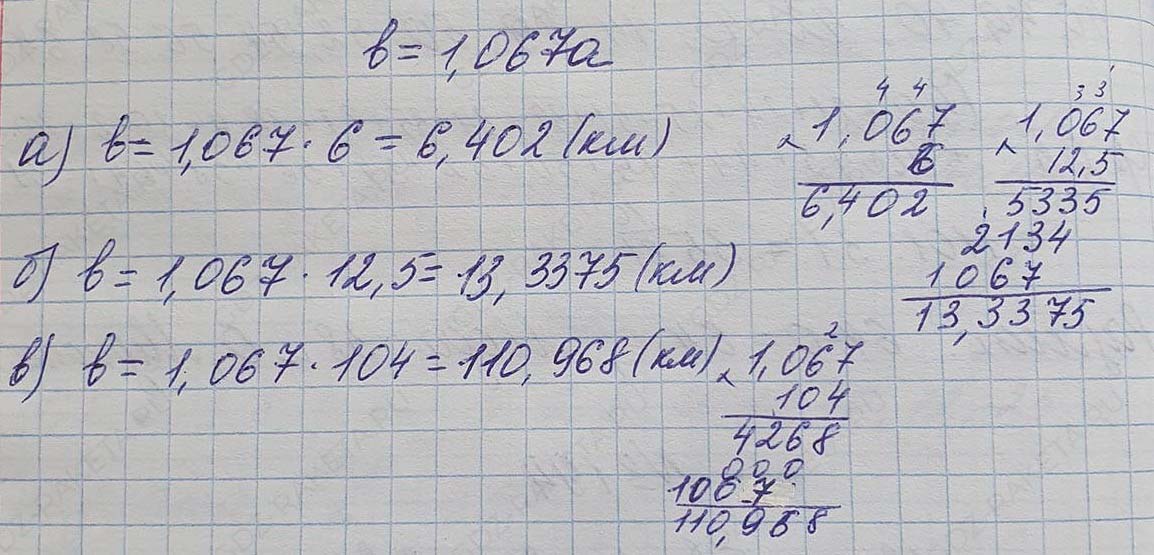 в = 1,067а
а) в = 1,067 · 6 = 6,402 (км)
4 4
× 1,067
6
6,402
1
3 3
× 1,067
12,5
5335
2134
1067
13,3375
б) в = 1,067 · 12,5 = 13,3375 (км)
в) в = 1,067 · 104 = 110,968 (км)
2
× 1,067
104
4268
000
1067
110,968